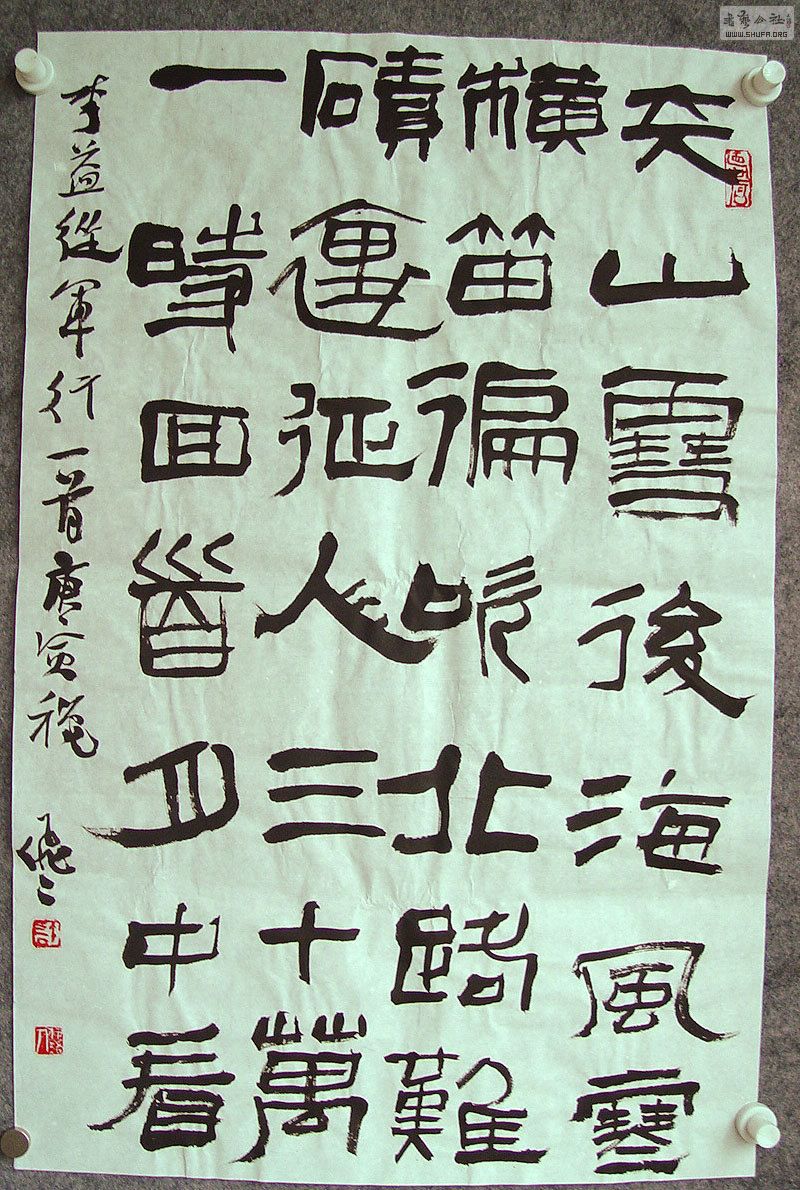 天山雪後海風寒
橫笛徧吹北路難
磧裏征人三十萬
一時回首月中看
李益從軍行一首庚寅穐
書藝公社
WWW.SHUFA.ORG